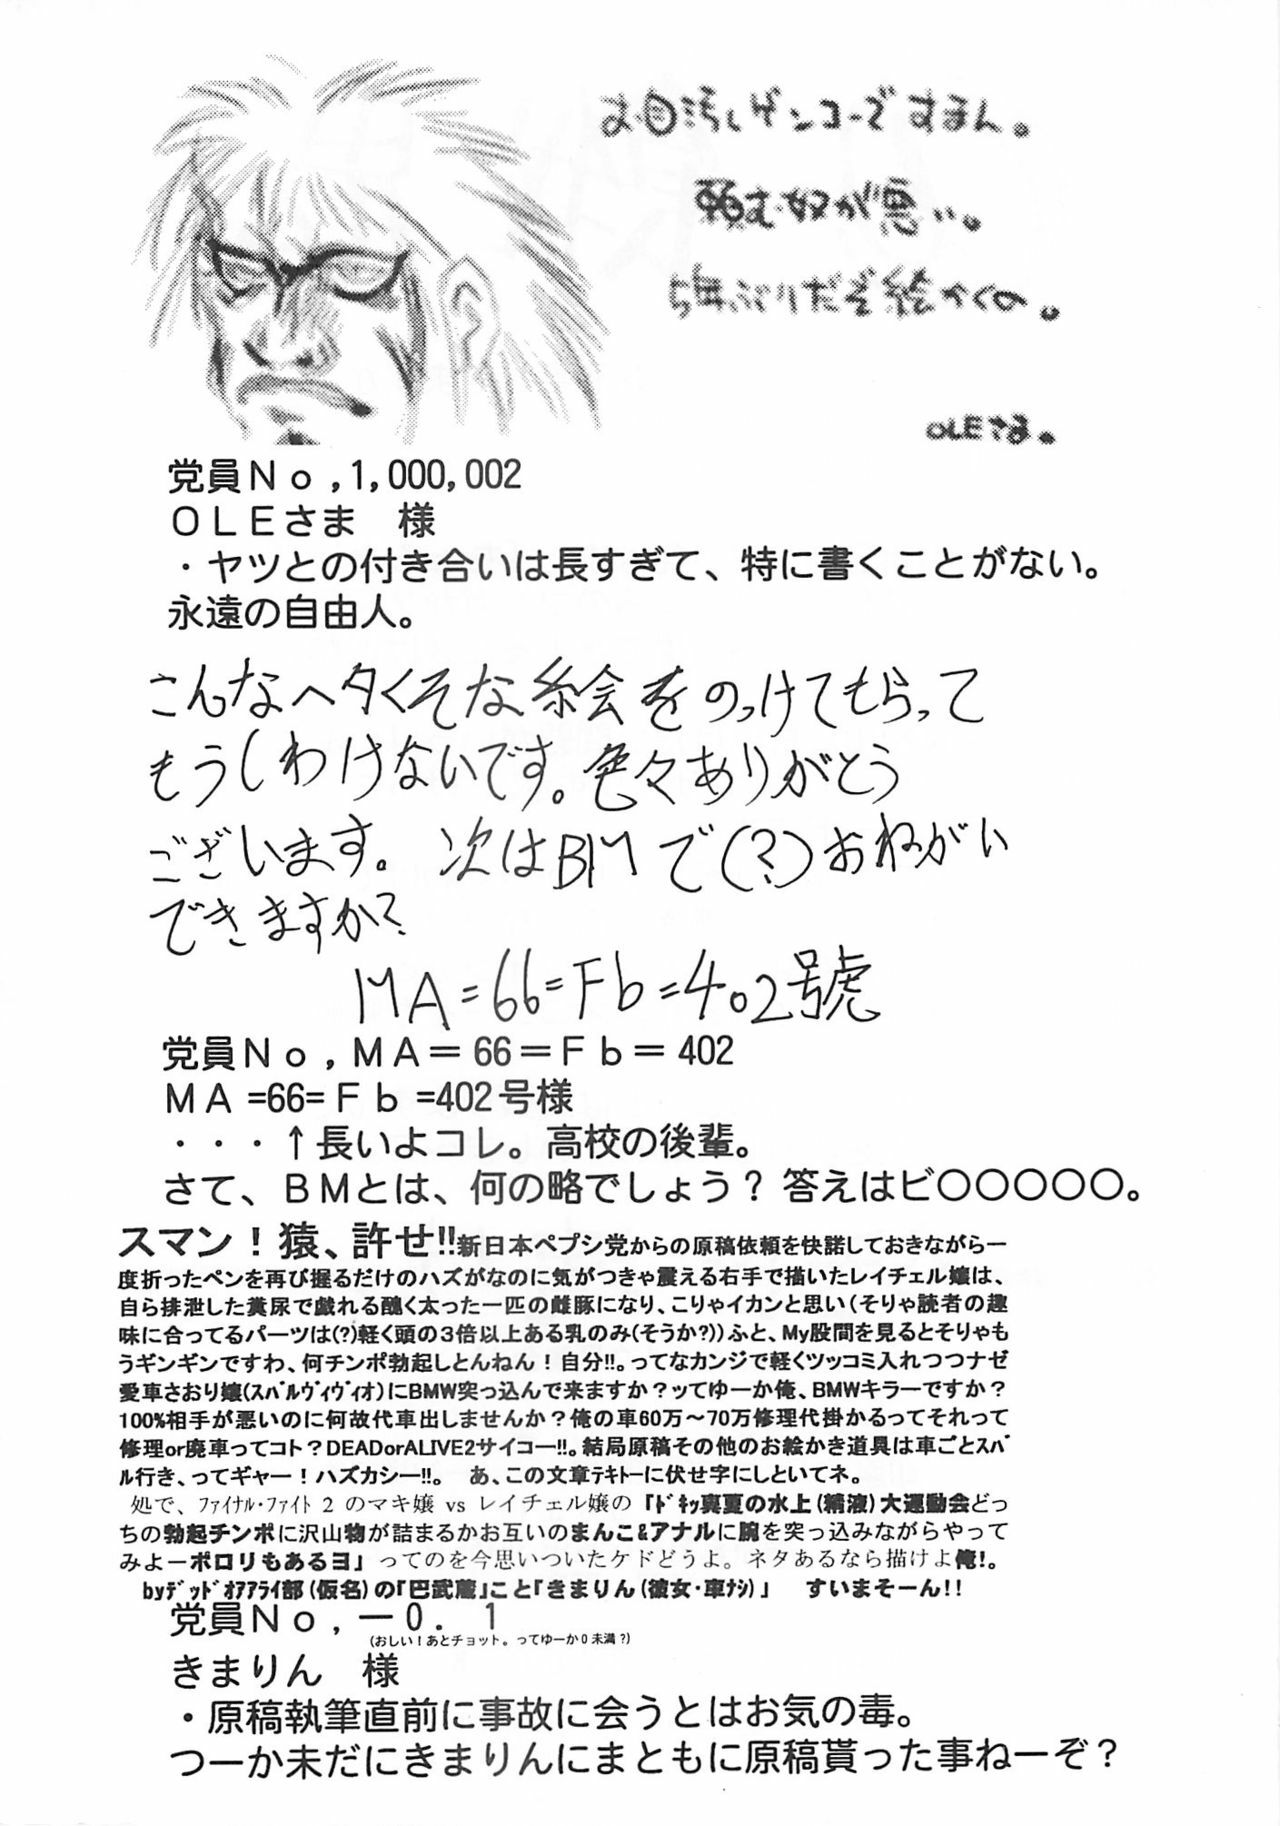 お目汚しゲンコーですまん。
頼む奴が悪い。
5年ぶりだぞ絵かくの。
OLEさま。
党員Ｎｏ,1,000,002
ＯＬＥさま　様
・ヤツとの付き合いは長すぎて、特に書くことがない。
永遠の自由人。
こんなヘタくそな絵をのっけてもらって
もうしわけないです。色々ありがとう
ございます。次はBMで(?)おねがい
できますか?
MA=66=Fb=402号
党員Ｎｏ,ＭＡ＝66＝Ｆｂ＝402
ＭＡ=66=Ｆｂ=402号様
・・・↑長いよコレ。高校の後輩。
さて、ＢＭとは、何の略でしょう？答えはビ〇〇〇〇〇。
スマン！猿、許せ!!新日本ペプシ党からの原稿依頼を快諾しておきながら一
度折ったペンを再び握るだけのハズがなのに気がつきゃ震える右手で描いたレイチェル嬢は、
自ら排泄した糞尿で戯れる醜く太った一匹の雌豚になり、こりゃイカンと思い(そりゃ読者の趣
味に合ってるパーツは(?)軽く頭の３倍以上ある乳のみ(そうか?))ふと、My股間を見るとそりゃも
うギンギンですわ、何チンポ勃起しとんねん！自分!!。ってなカンジで軽くツッコミ入れつつナゼ
愛車さおり嬢(ｽﾊﾞﾙヴィヴィオ)にBMW突っ込んで来ますか？ッてゆーか俺、BMWキラーですか？
100%相手が悪いのに何故代車出しませんか？俺の車60万～70万修理代掛かるってそれって
修理or廃車ってコト？DEADorALIVE2サイコー!!。結局原稿その他のお絵かき道具は車ごとｽﾊﾞ
ル行き、ってギャー！ハズカシー!!。　あ、この文章ﾃｷﾄーに伏せ字にしといてネ。
処で、ﾌｧｲﾅﾙ･ﾌｧｲﾄ２のマキ嬢 vs レイチェル嬢の「ﾄﾞｷｯ真夏の水上(精液)大運動会どっ
ちの勃起チンポに沢山物が詰まるかお互いのまんこ&アナルに腕を突っ込みながらやって
みよーポロリもあるヨ」ってのを今思いついたケドどうよ。ネタあるなら描けよ俺!。
byﾃﾞｯﾄﾞｵｱｱﾗｲ部(仮名)の「巴武蔵」こと「きまりん(彼女・車ﾅｼ)」　すいまそーん!!
党員Ｎｏ,－0．1
(おしい！あとチョット。ってゆーか０未満？)
きまりん　様
・原稿執筆直前に事故に会うとはお気の毒。
つーか未だにきまりんにまともに原稿貰った事ねーぞ？